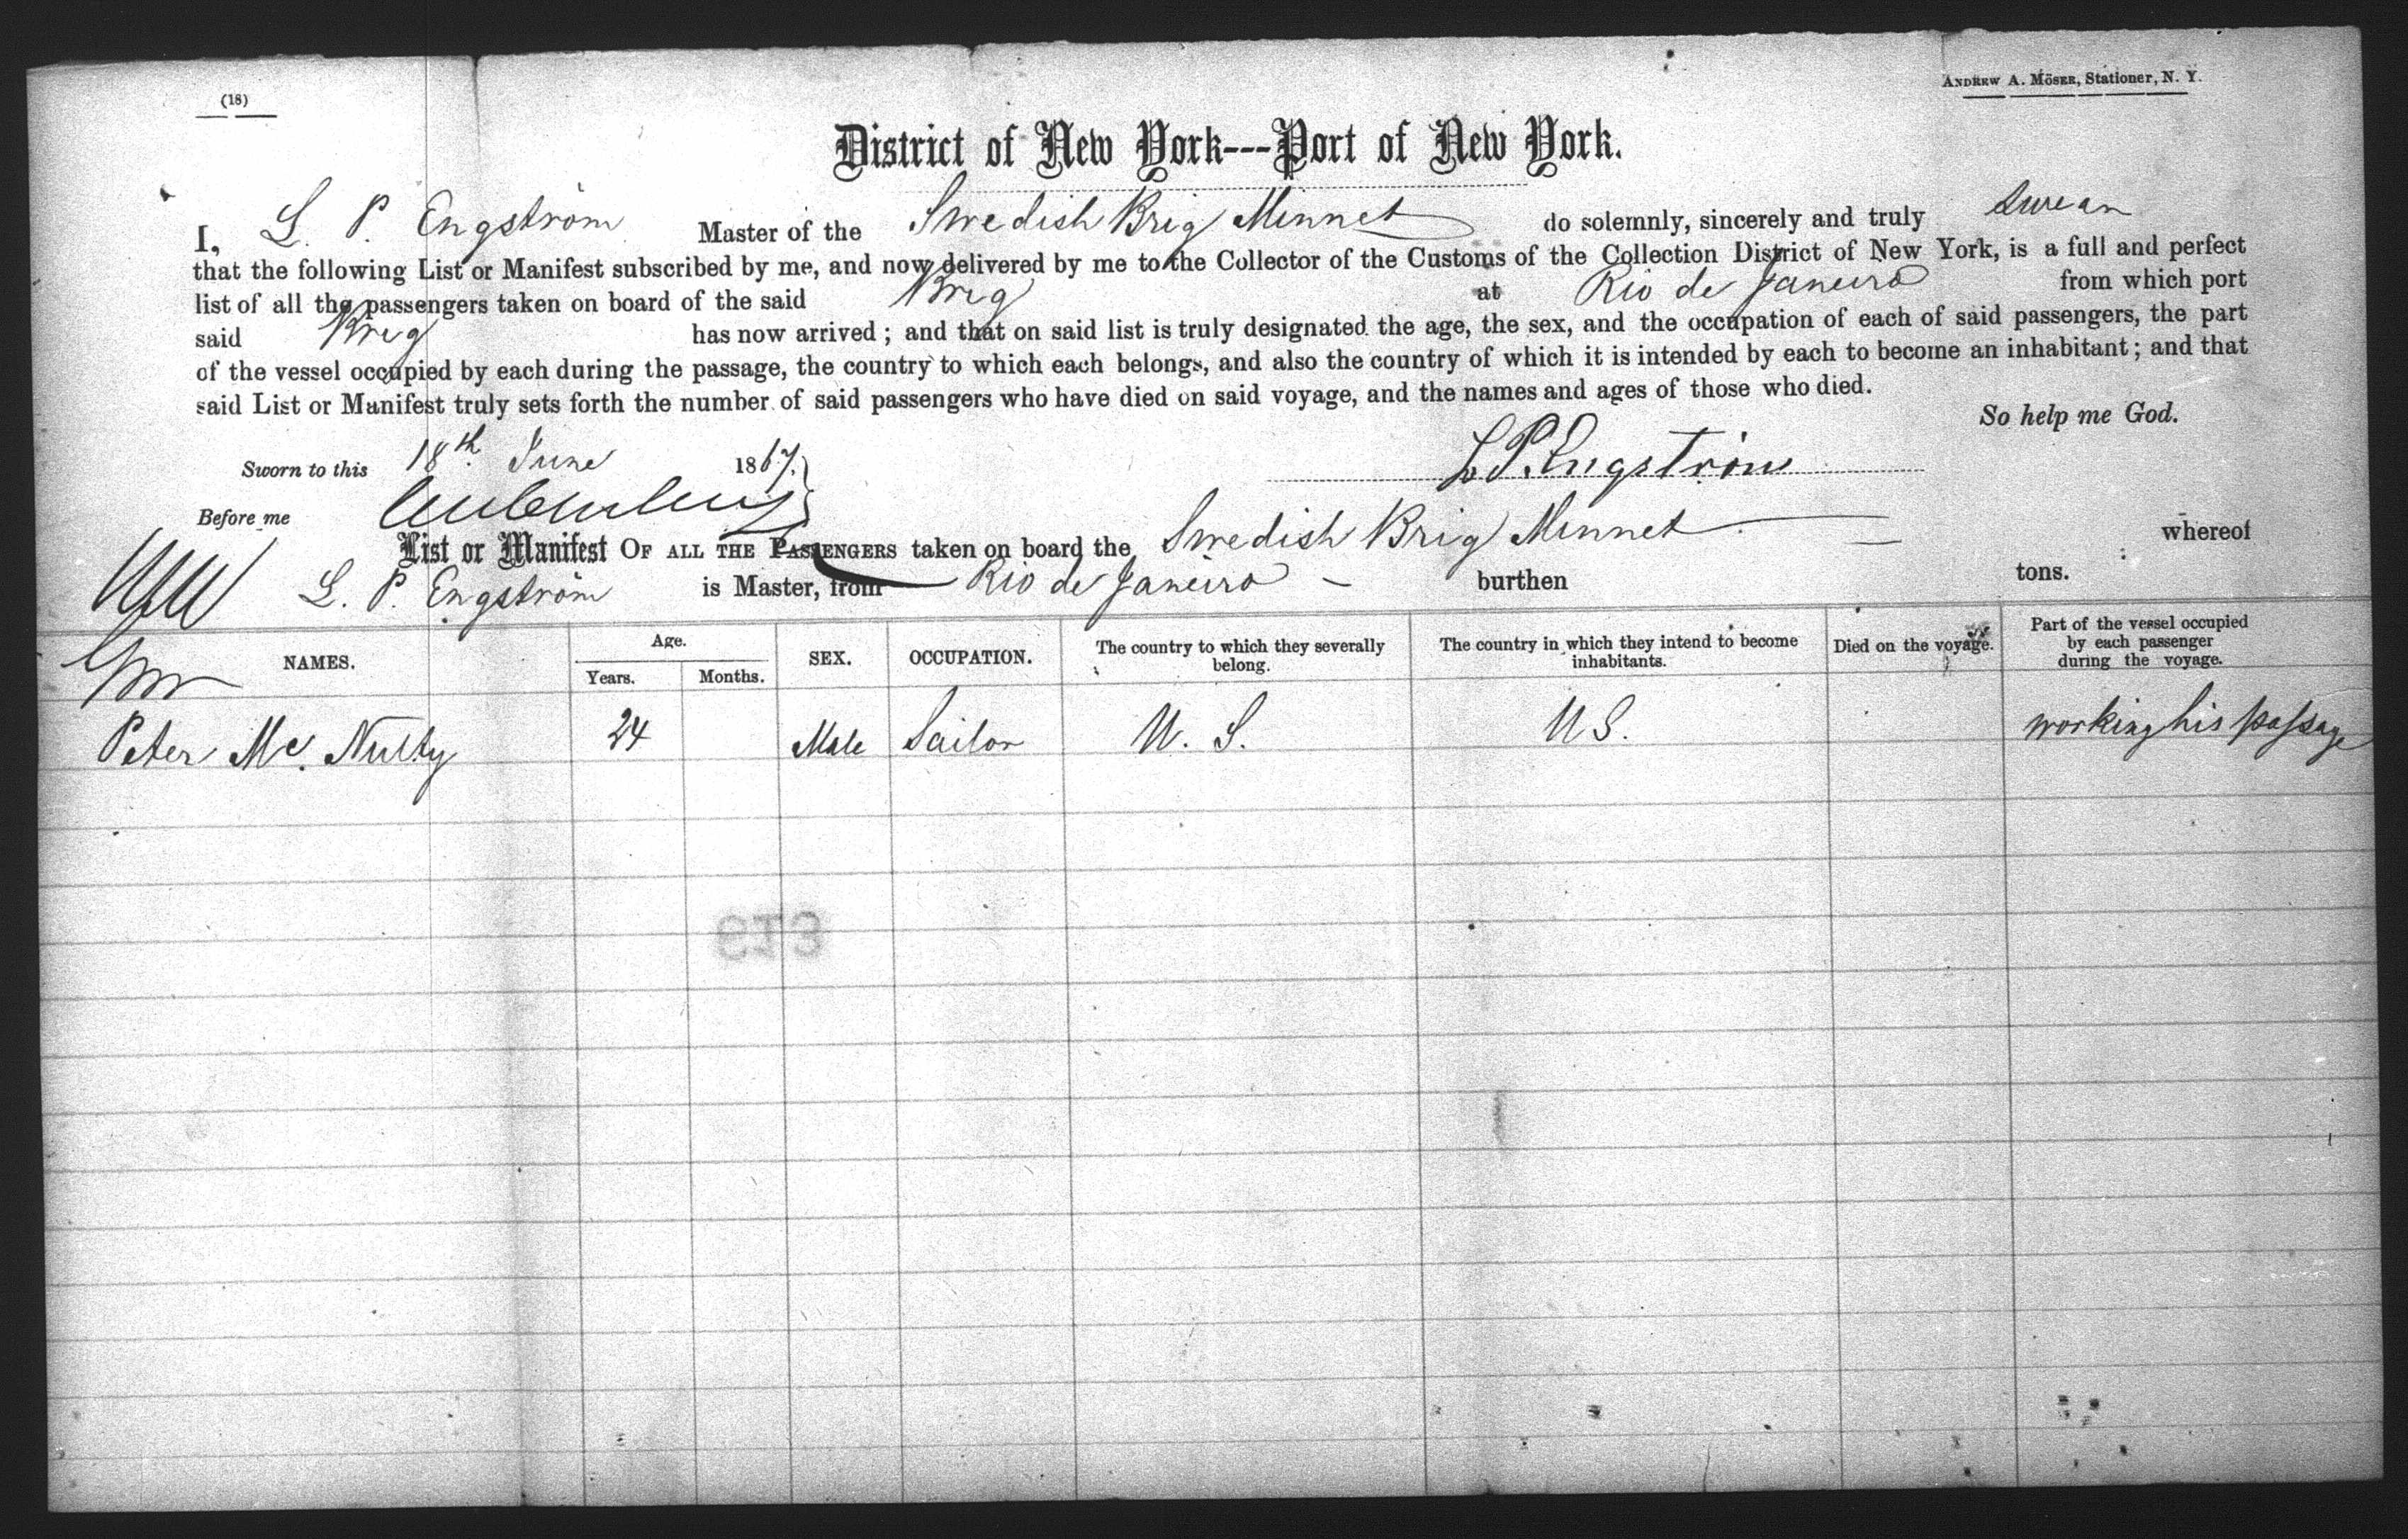 (18)
ANDREW A. MÖSER, Stationer, N. Y.
District of New York---Port of New York.
I, L. P. Engström Master of the Swedish Brig Minnet do solemnly, sincerely and truly swear
that the following List or Manifest subscribed by me, and now delivered by me to the Collector of the Customs of the Collection District of New York, is a full and perfect
list of all the passengers taken on board of the said Brig at Rio de Janeiro from which port
said Brig has now arrived; and that on said list is truly designated the age, the sex, and the occupation of each of said passengers, the part
of the vessel occupied by each during the passage, the country to which each belongs, and also the country of which it is intended by each to become an inhabitant; and that
said List or Manifest truly sets forth the number of said passengers who have died on said voyage, and the names and ages of those who died.
So help me God.
Sworn to this 18th June 1867.
L. P. Engström
Before me
List or Manifest OF ALL THE PASSENGERS taken on board the Swedish Brig Minnet whereof
L. P. Engström is Master, from Rio de Janeiro burthen tons.
NAMES. Age. Years. Months. SEX. OCCUPATION. The country to which they severally belong. The country in which they intend to become inhabitants. Died on the voyage. Part of the vessel occupied by each passenger during the voyage.
Peter Mc. Nulty 24 Male Sailor U. S. U S. working his passage